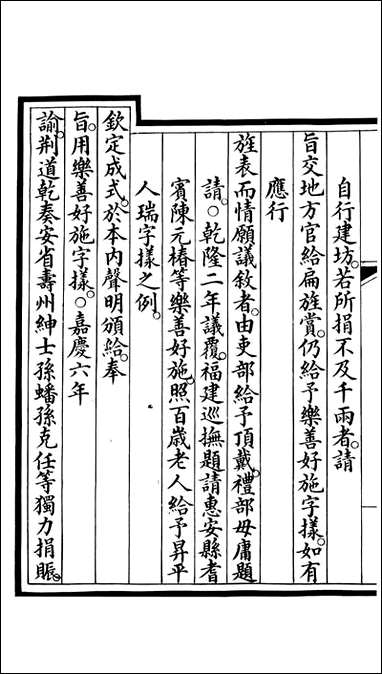 自行建坊。若所捐不及千兩者。請
旨交地方官給扁旌賞。仍給予樂善好施字樣。如有
應行
旌表而情願議敘者。由吏部給予頂戴。禮部毋庸題
請。○乾隆二年議覆。福建巡撫題請惠安縣耆
賓陳元椿等樂善好施。照百歲老人給予昇平
人瑞字樣之例。
欽定成式。於本內聲明頒給。奉
旨。用樂善好施字樣。○嘉慶六年
諭。荆道乾奏安省壽州紳士孫蟠孫克任等獨力捐賑。